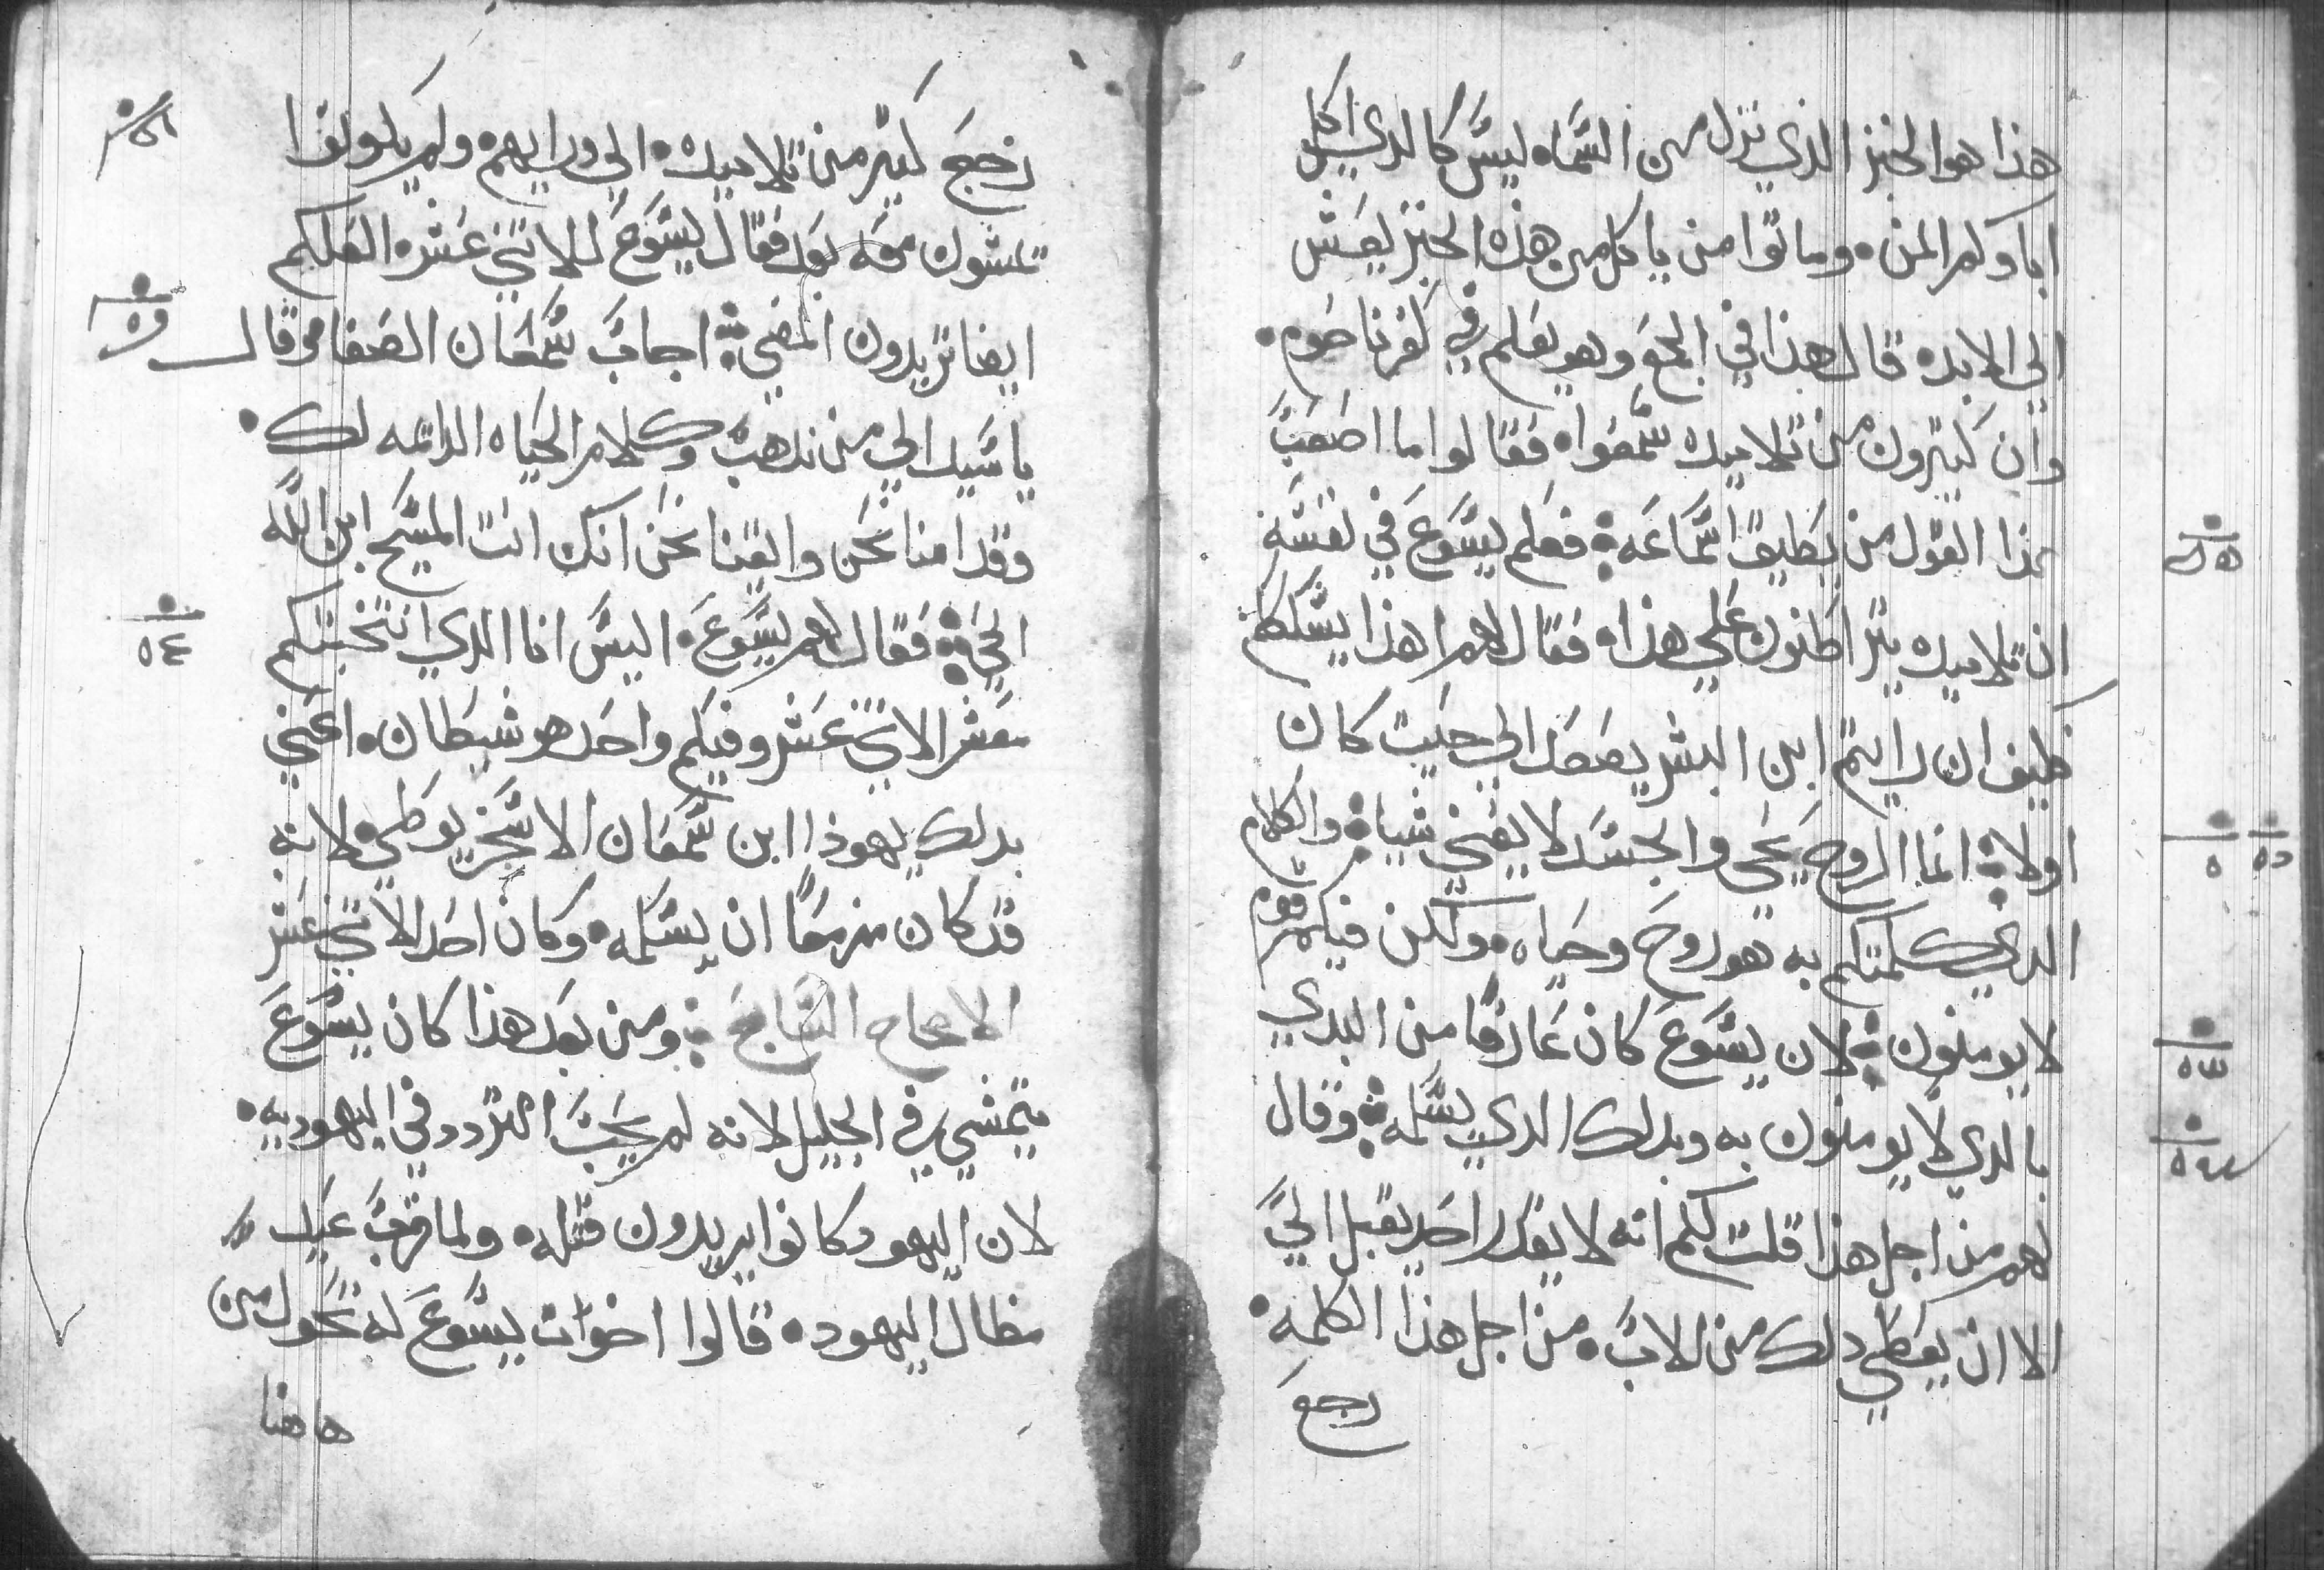 هذا هو الخبز الذي نزل من السماء ليس كالذي اكل
اباوكم المن وماتوا من ياكل من هذه الخبز يعش
الي الابد قال هذا في المجمع وهو يعلم في كفرناحوم
وان كثيرون من تلاميده سمعوا فقالوا ما اصعب
هذا القول من يطيق اسماعه فعلم يسوع في نفسه
ان تلاميده يتراطنون علي هذا فقال لهم اهذا يشككم
فكيف ان رايتم ابن البشر يصعد الي حيت كان
اولا انما الروح يحي والجسد لا يغني شيا والكلام
الدي كلمتكم به هو روح وحياه ولكن فيكم قوم
لا يومنون لان يسوع كان عارفا من البدي
بالدي لا يومنون به وبدلك الدي يسلمه وقال
لهم من اجل هذا قلت لكم انه لا يقدر احد يقبل الي
الا ان يعطي دلك من الاب من اجل هذا الكلمه
رجع
رجع كثير من تلاميده الي ورايهم ولم يكونوا
يمشون معه بعد فقال يسوع للاتني عشر العلكم
ايضا تريدون المضي اجاب سمعان الصفا وقال
ياسيد الي من ندهب وكلام الحياه الدايمه لك
وقد امنا نحن وايقنا نحن انك انت المسيح ابن الله
الحي فقال لهم يسوع اليس انا الدي انتخبتكم
معشر الاتني عشر وفيكم واحد هو شيطان اعني
بدلك يهودا ابن سمعان الاسخريوطي لانه
قد كان مزمعا ان يسلمه وكان احد الاتني عشر
الاصحاح السابع ومن بعد هذا كان يسوع
يتمشي في الجليل لانه لم يحب التردد في اليهوديه
لان اليهود كانوا يريدون قتله ولما قرب عيد
مظال اليهود قالوا اخوات يسوع له تحول من
هاهنا